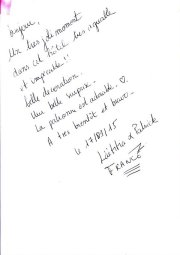 Bonjour,
Un très joli moment
dans cet hôtel très agréable
et impeccable !!
belle décoration.
Une belle surprise.
La patronne est adorable. ♡
A très bientôt et bravo.
le 17/09/15
Laëtitia & Patrick
FRANCE